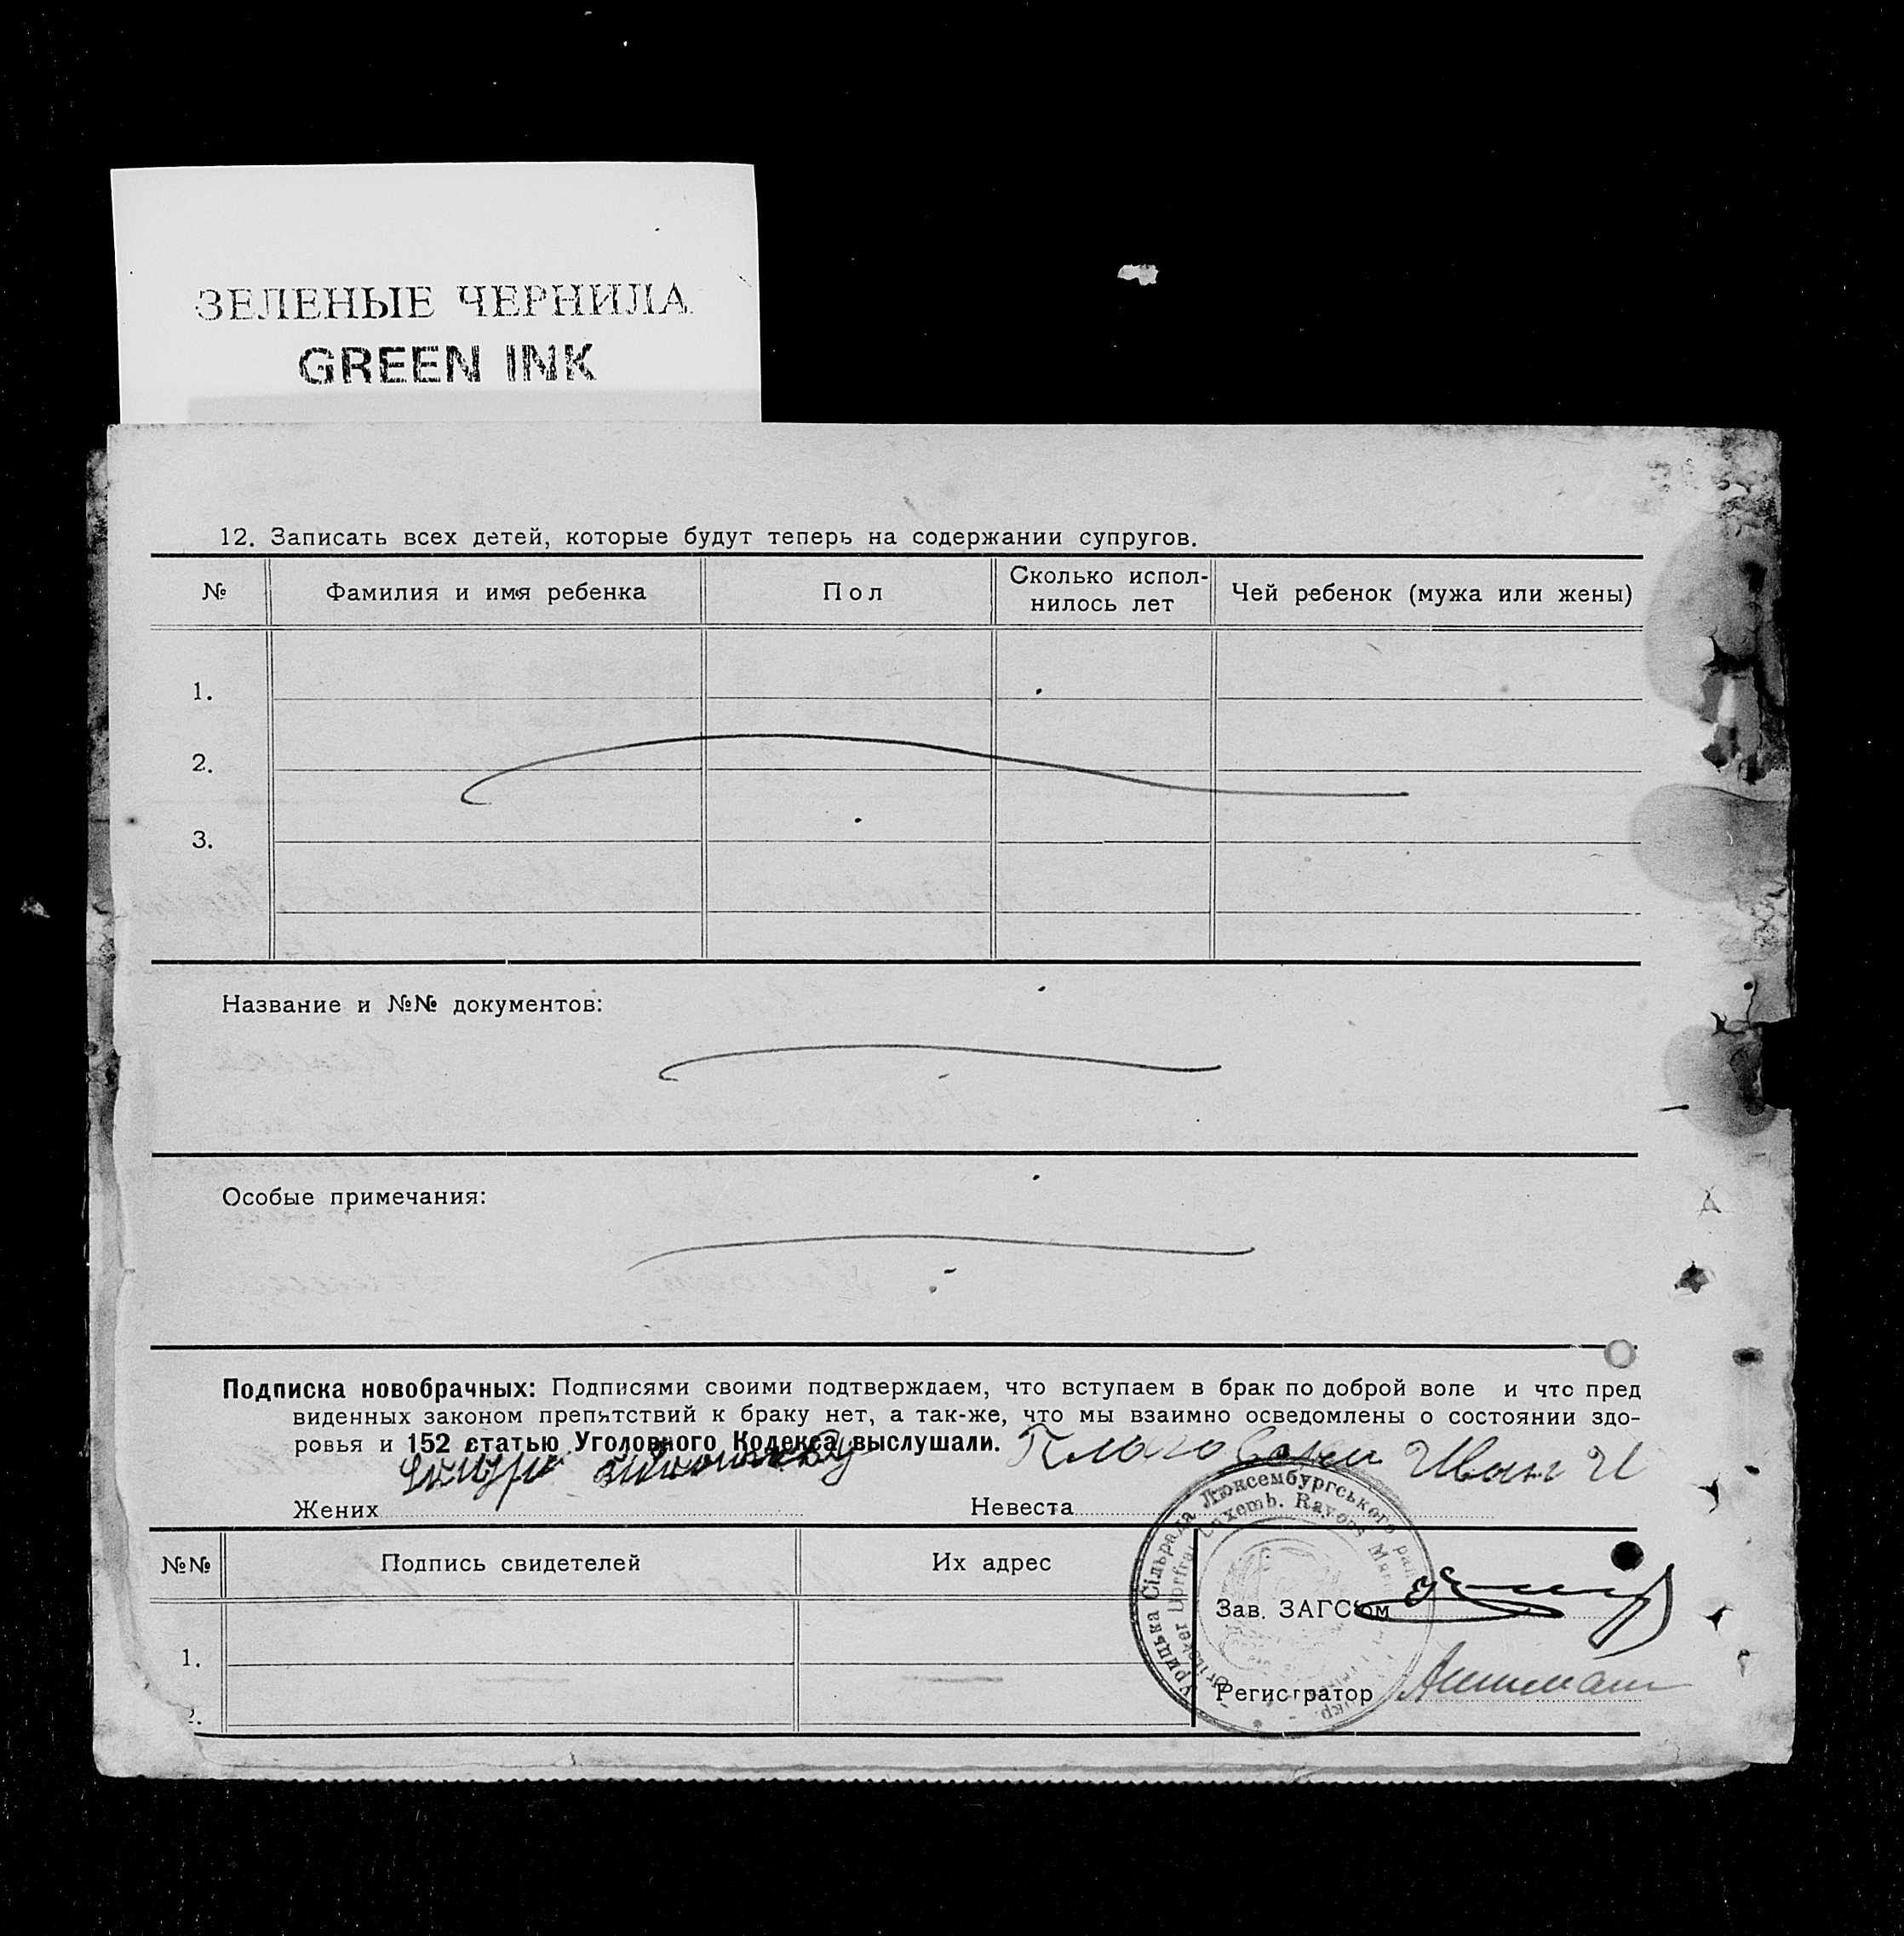 ЗЕЛЕНЫЕ ЧЕРНИЛА
GREEN INK
12. Записать всех детей, которые будут теперь на содержании супругов.
№ Фамилия и имя ребенка Пол Сколько испол-нилось лет Чей ребенок (мужа или жены)
1.
2.
3.
Название и №№ документов:
Особые примечания:
Подписка новобрачных: Подписями своими подтверждаем, что вступаем в брак по доброй воле и что пред
виденных законом препятствий к браку нет, а так-же, что мы взаимно осведомлены о состоянии здо-
ровья и 152 статью Уголовного Кодекса выслушали.
Иван И
Жених Невеста
Сільрада Люксембургського
Luxemb. Rayons
№№ Подпись свидетелей Их адрес
Зав. ЗАГС'ом
1.
Регистратор
2.